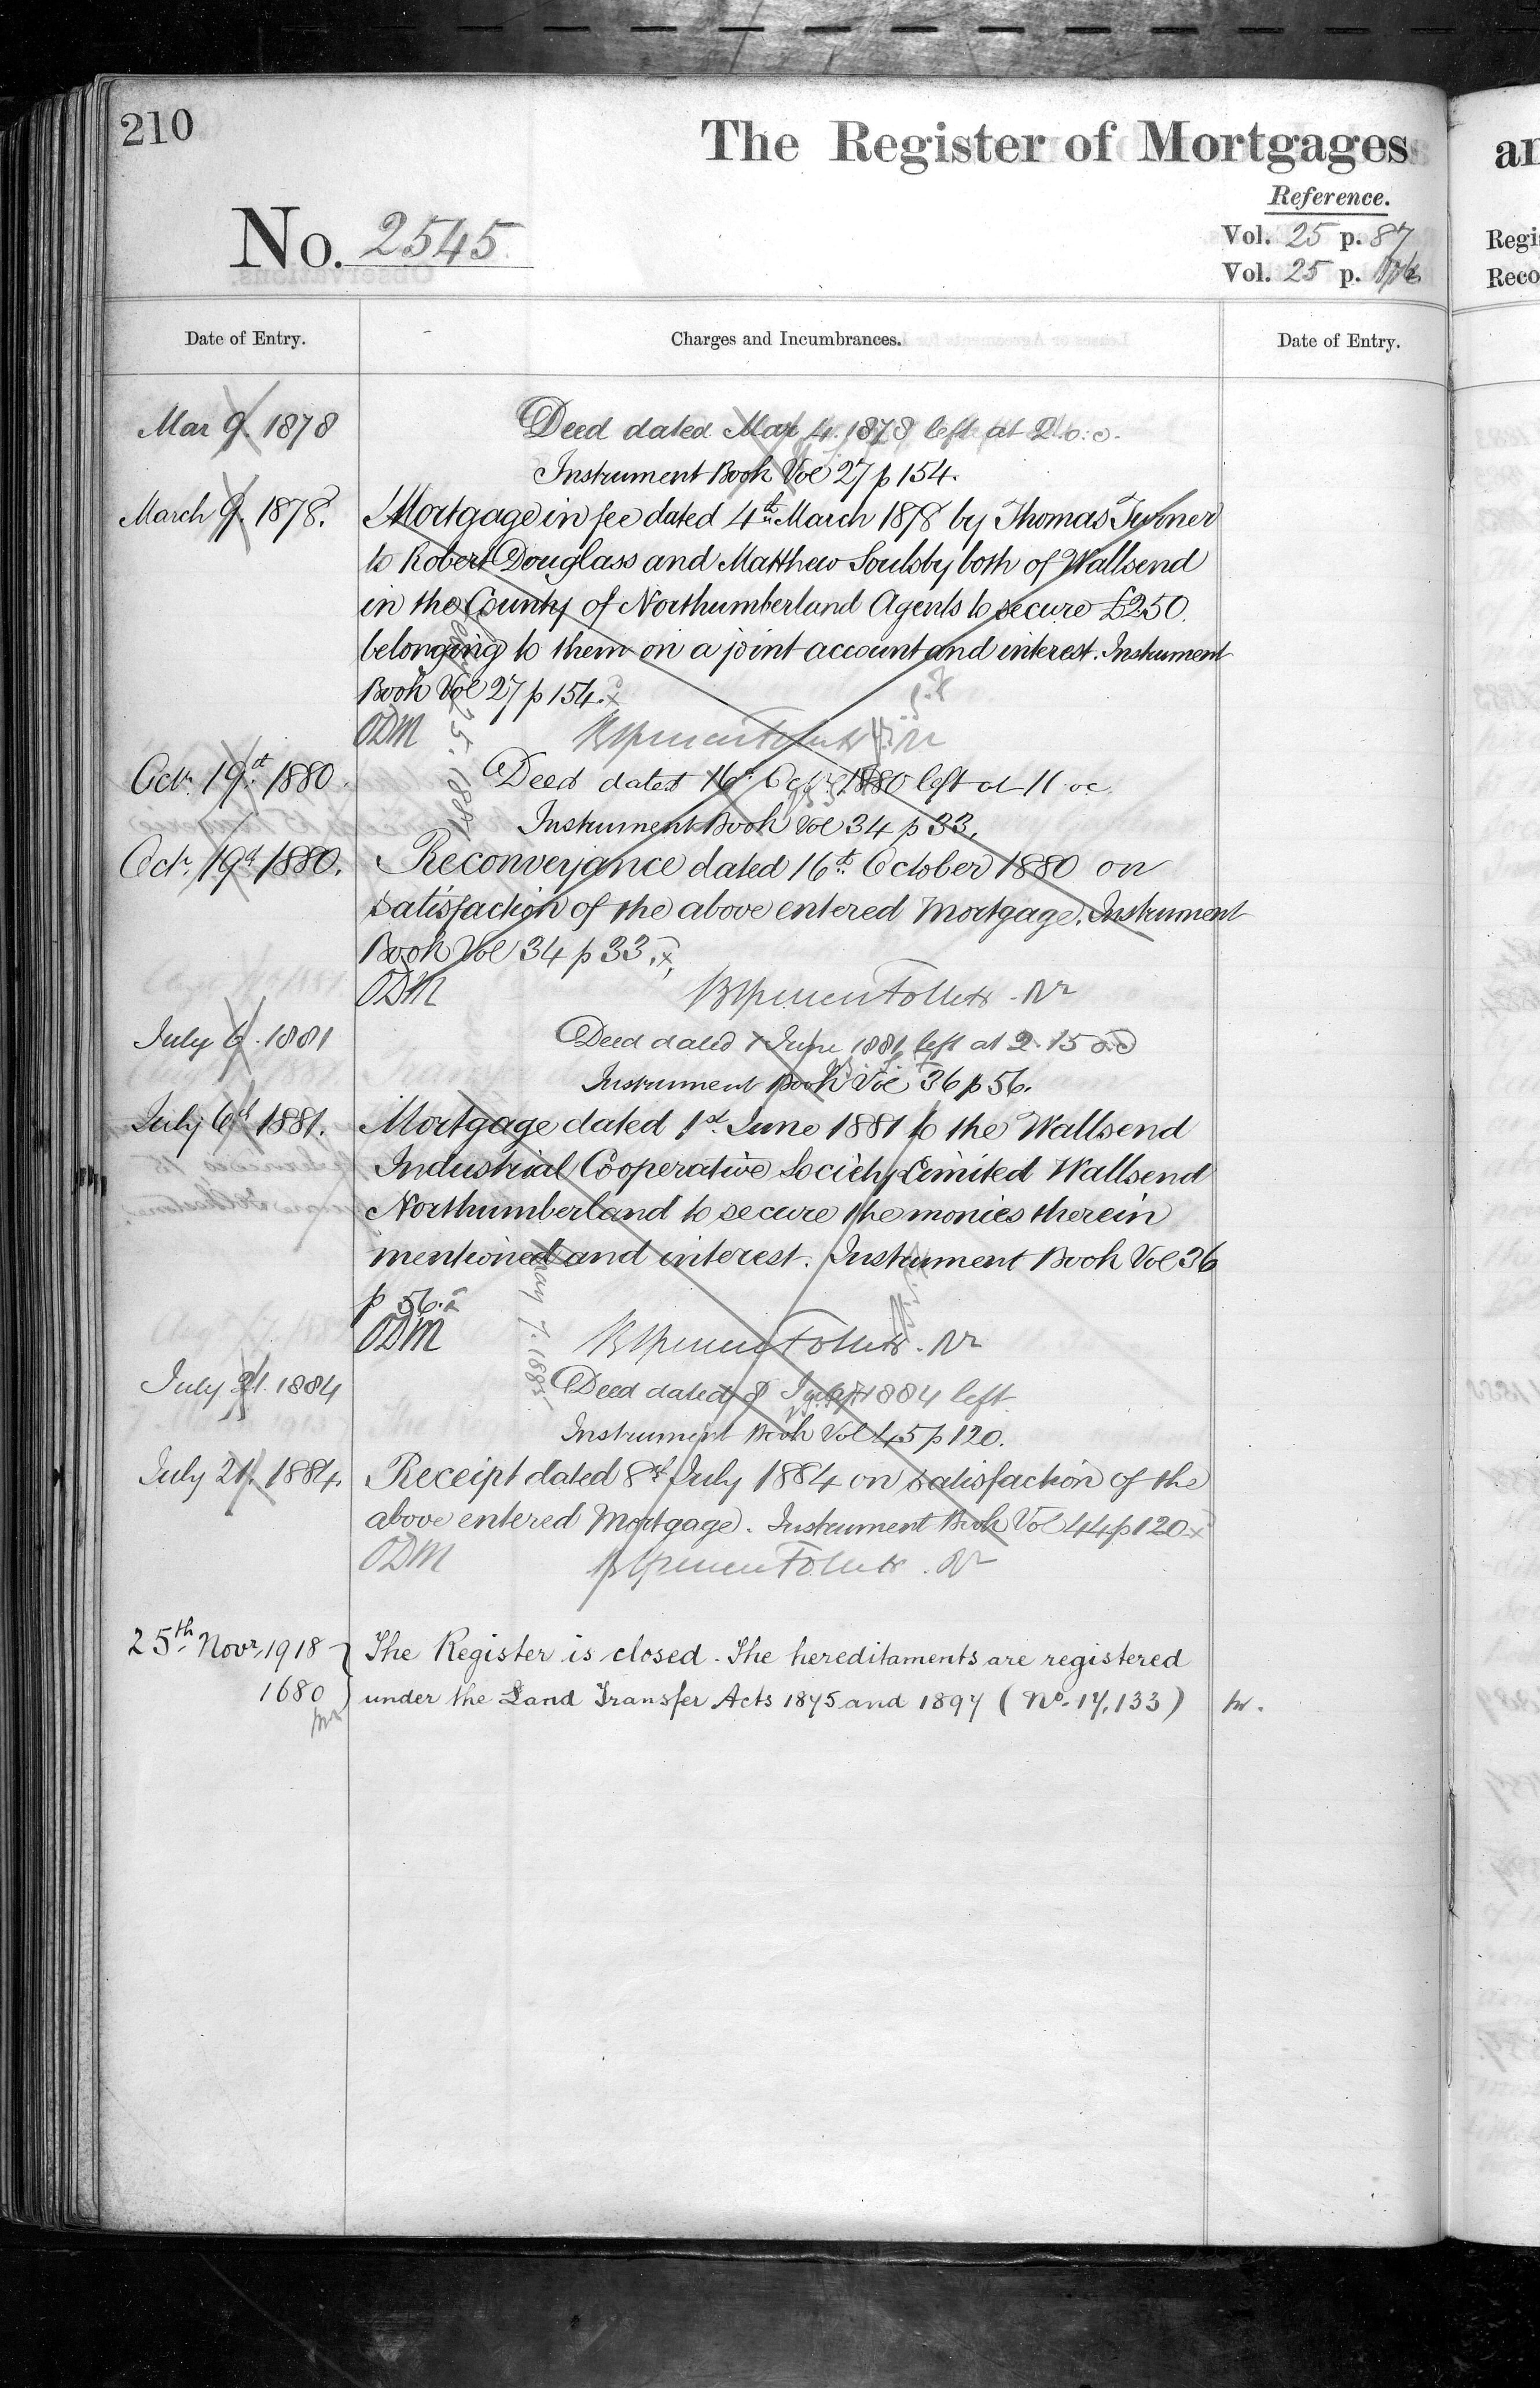 210
The Register of Mortgages
Reference.
No. 2545.
Vol. 25 p. 87
Vol. 25 p.
Regi
Reco
Date of Entry.
Charges and Incumbrances.
Date of Entry.
Mar 9. 1878
Deed dated Mar 4. 1878 left at 2 o.c.
Instrument Book Vol 27 p 154.
March 9. 1878.
Mortgage in fee dated 4th March 1878 by Thomas Turner
to Robert Douglass and Matthew Soulsby both of Wallsend
in the County of Northumberland Agents to secure £250.
belonging to them on a joint account and interest. Instrument
Book Vol 27 p 154.
ODM
Octr. 19th 1880.
Deed dated 16th Octr 1880 left at 11 oc
Instrument Book Vol 34 p 33.
Octr. 19th 1880.
Reconveyance dated 16th October 1880 on
satisfaction of the above entered Mortgage. Instrument
Book Vol 34 p 33.
ODM
July 6. 1881
Deed dated 1 June 1881 left at 2.15 o.c
Instrument Book Vol 36 p 56.
July 6th 1881.
Mortgage dated 1st June 1881 to the Wallsend
Industrial Cooperative Society Limited Wallsend
Northumberland to secure the monies therein
mentioned and interest. Instrument Book Vol 36
p 56.
ODM
May 7. 1885
July 21. 1884
Deed dated 8 July 1884 left
Instrument Book Vol 45 p 120.
July 21. 1884.
Receipt dated 8th July 1884 on satisfaction of the
above entered Mortgage. Instrument Book Vol 44 p 120
ODM
25th Novr. 1918
The Register is closed. The hereditaments are registered
1680
under the Land Transfer Acts 1875 and 1897 (No. 17,133)